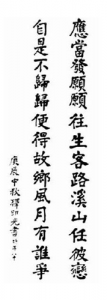 應當發願願往生客路溪山任彼戀
自是不歸歸便得故鄉風月有誰爭
庚辰中秋釋印光書時年八十